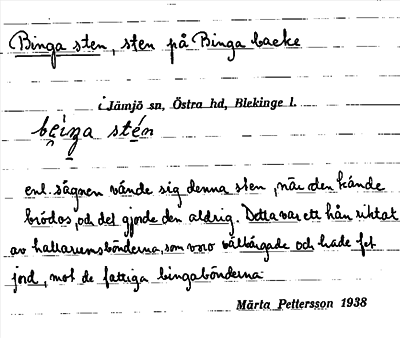 Binga sten, sten på Binga backe
i Jämjö sn, Östra hd, Blekinge l.
beinga stén
enl. sägnen vände sig denna sten, när den kände
brödos, och det gjorde den aldrig. Detta var ett hån riktat
av hallarumsbönderna, som voro välbärgade och hade fet
jord, mot de fattiga bingabönderna
Märta Pettersson 1938